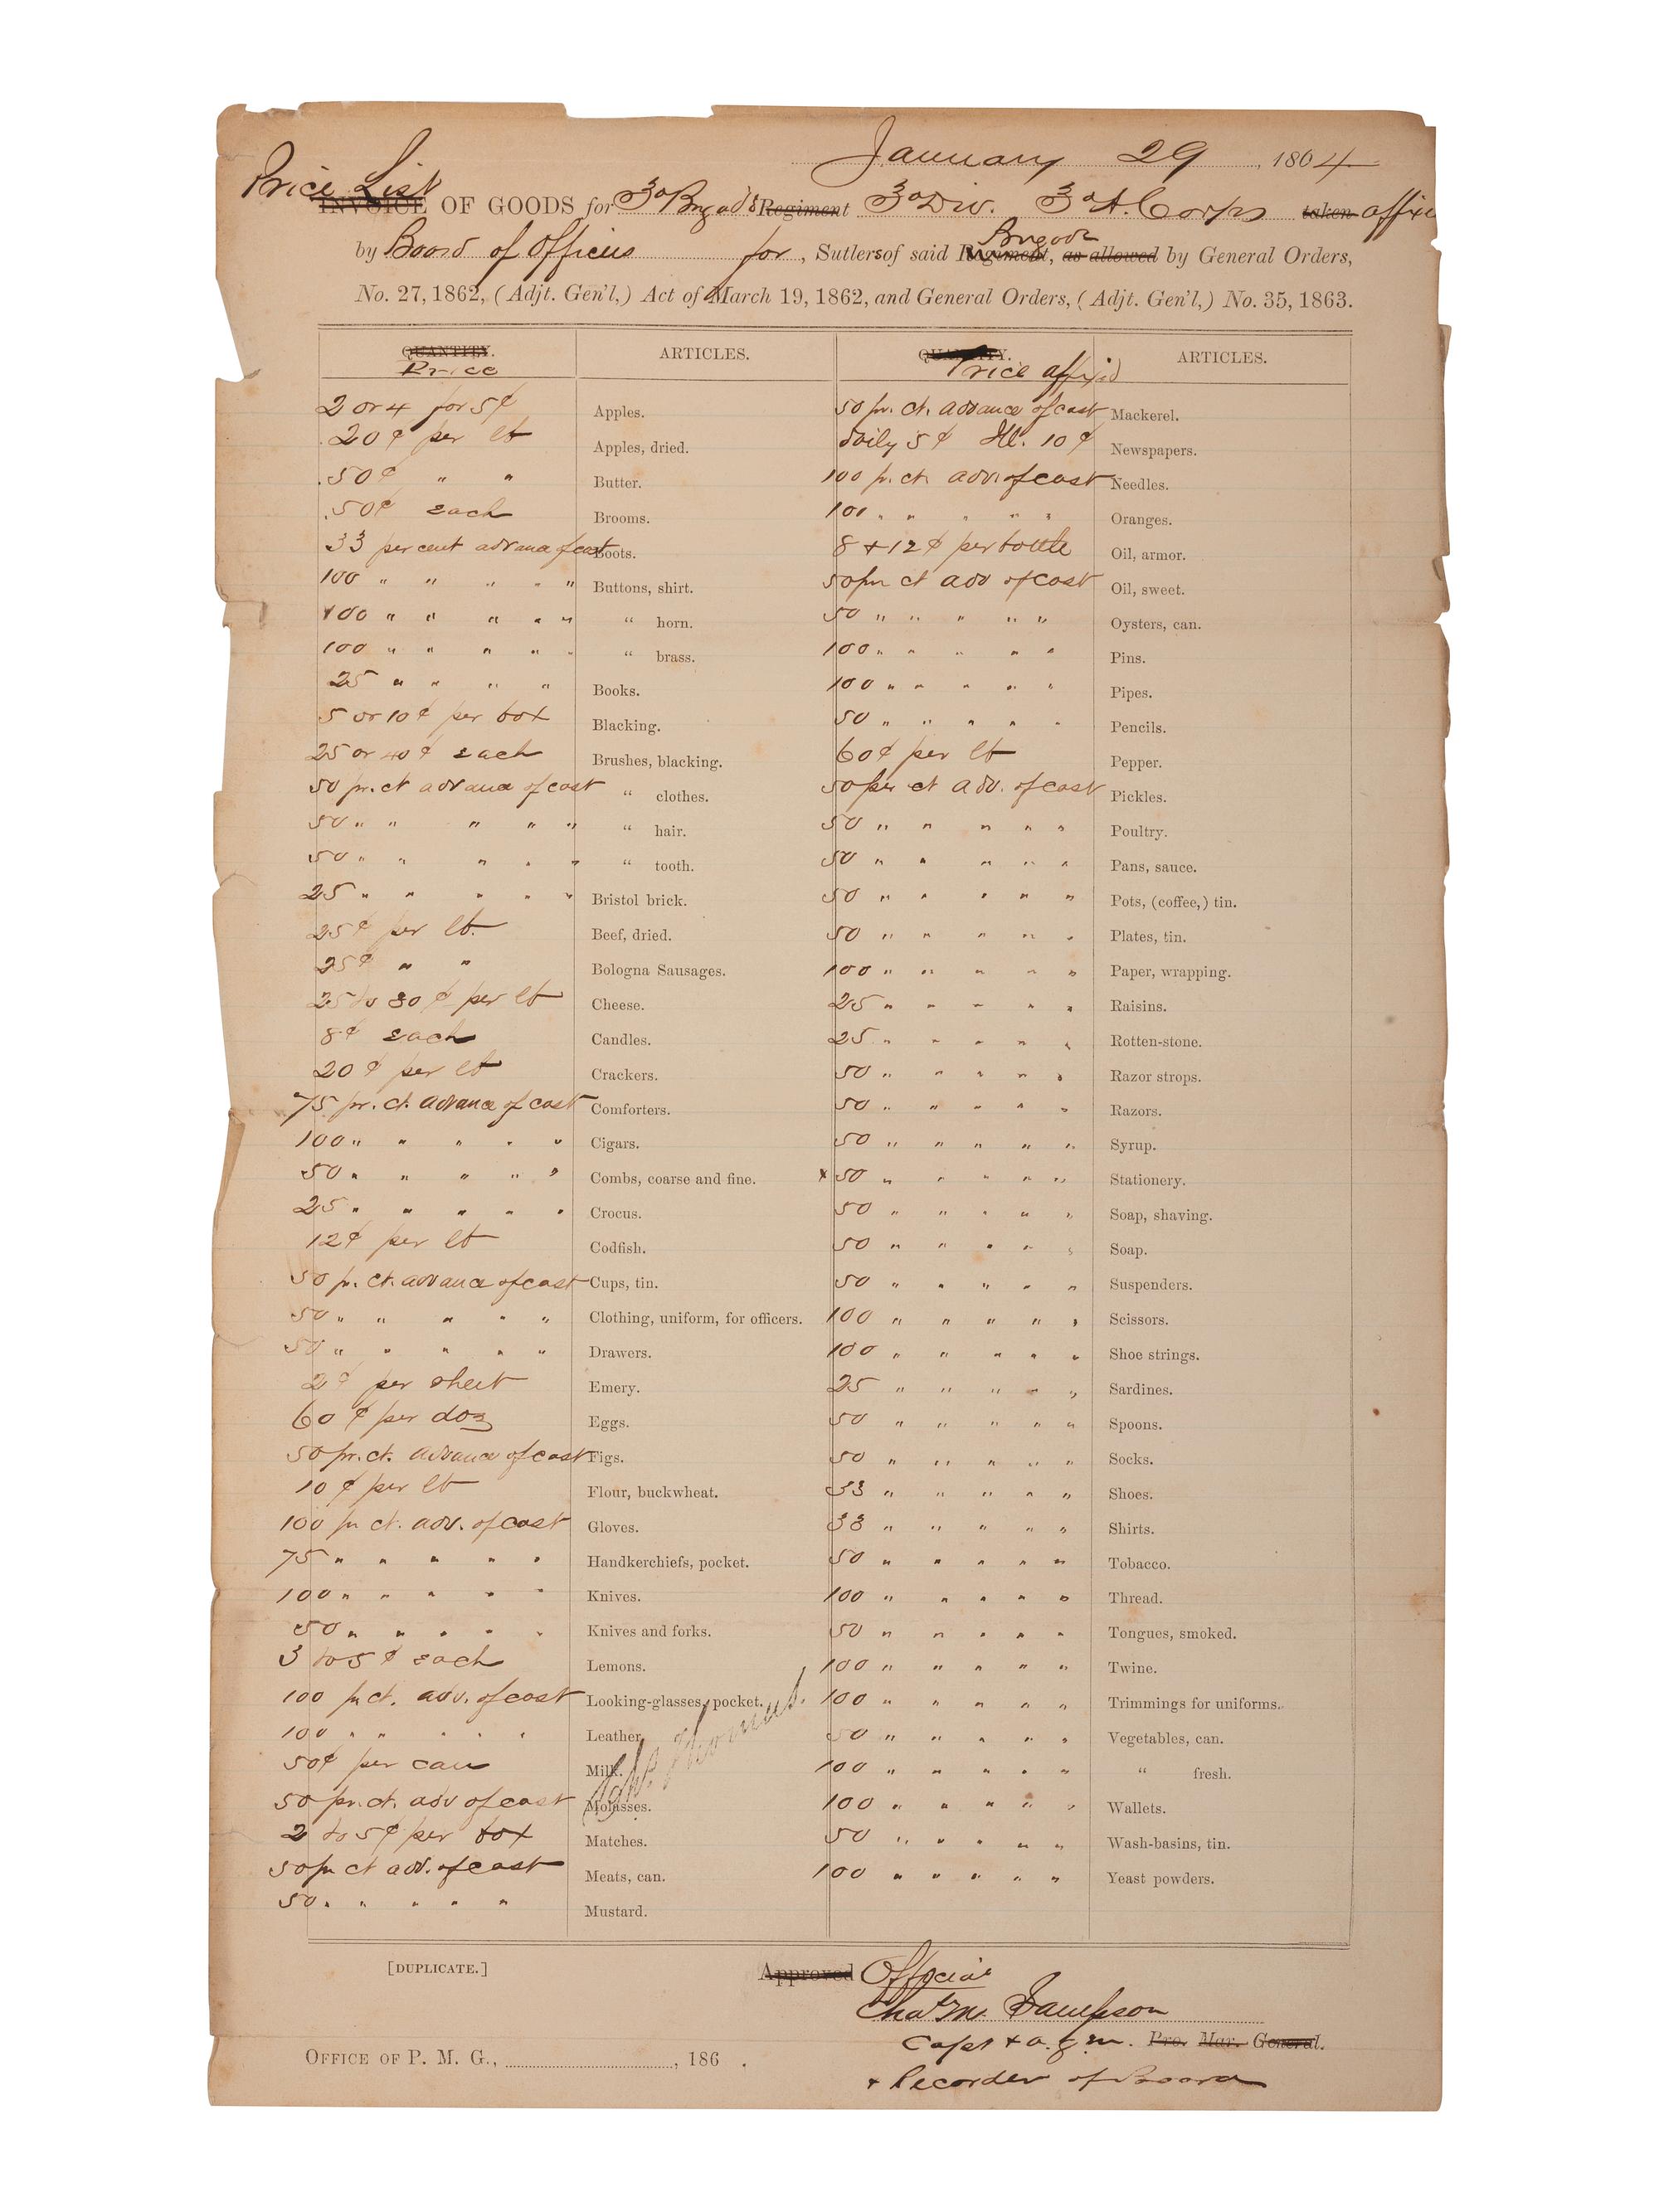 January 29, 1864
Price List
INVOICE OF GOODS for 3d Brigade Regiment 3d Div. 3d A. Corps taken affix
by Board of Officers for, Sutlers of said Regiment, Brigade as allowed by General Orders,
No. 27, 1862, (Adjt. Gen'l,) Act of March 19, 1862, and General Orders, (Adjt. Gen'l,) No. 35, 1863.
QUANTITY. ARTICLES. QUANTITY. ARTICLES.
Price Price affixed
2 or 4 for 5¢ Apples. 50 pr. ct. advance of cost Mackerel.
20¢ per lb Apples, dried. daily 5¢ Ill. 10¢ Newspapers.
.50¢ " " Butter. 100 pr. ct. adv. of cost Needles.
.50¢ each Brooms. 100 " " " " " Oranges.
33 per cent advance of cost Boots. 8 + 12¢ per bottle Oil, armor.
100 " " " " " Buttons, shirt. 50 pr ct adv of cost Oil, sweet.
100 " " " " " " horn. 50 " " " " " Oysters, can.
100 " " " " " " brass. 100 " " " " " Pins.
25 " " " " Books. 100 " " " " " Pipes.
5 or 10¢ per box Blacking. 50 " " " " " Pencils.
25 or 40¢ each Brushes, blacking. 60¢ per lb Pepper.
50 pr. ct advance of cost " clothes. 50 per ct adv. of cost Pickles.
50 " " " " " " hair. 50 " " " " " Poultry.
50 " " " " " " tooth. 50 " " " " " Pans, sauce.
25 " " " " " Bristol brick. 50 " " " " " Pots, (coffee,) tin.
25¢ per lb. Beef, dried. 50 " " " " " Plates, tin.
25¢ " " Bologna Sausages. 100 " " " " " Paper, wrapping.
25 to 30¢ per lb Cheese. 25 " " " " " Raisins.
8¢ each Candles. 25 " " " " " Rotten-stone.
20¢ per lb Crackers. 50 " " " " " Razor strops.
75 pr. ct. advance of cost Comforters. 50 " " " " " Razors.
100 " " " " " Cigars. 50 " " " " " Syrup.
50 " " " " " Combs, coarse and fine. x 50 " " " " " Stationery.
25 " " " " " Crocus. 50 " " " " " Soap, shaving.
12¢ per lb Codfish. 50 " " " " " Soap.
50 pr. ct. advance of cost Cups, tin. 50 " " " " " Suspenders.
50 " " " " " Clothing, uniform, for officers. 100 " " " " " Scissors.
50 " " " " " Drawers. 100 " " " " " Shoe strings.
2¢ per sheet Emery. 25 " " " " " Sardines.
60¢ per doz Eggs. 50 " " " " " Spoons.
50 pr. ct. advance of cost Figs. 50 " " " " " Socks.
10¢ per lb Flour, buckwheat. 33 " " " " " Shoes.
100 pr ct. adv. of cost Gloves. 33 " " " " " Shirts.
75 " " " " " Handkerchiefs, pocket. 50 " " " " " Tobacco.
100 " " " " " Knives. 100 " " " " " Thread.
50 " " " " " Knives and forks. 50 " " " " " Tongues, smoked.
3 to 5¢ each Lemons. 100 " " " " " Twine.
100 pr ct. adv. of cost Looking-glasses, pocket. 100 " " " " " Trimmings for uniforms.
100 " " " " " Leather. 50 " " " " " Vegetables, can.
50¢ per can Milk. 100 " " " " " " fresh.
50 pr. ct. adv of cost Molasses. 100 " " " " " Wallets.
2 to 5¢ per box Matches. 50 " " " " " Wash-basins, tin.
50 pr ct adv. of cost Meats, can. 100 " " " " " Yeast powders.
50 " " " " " Mustard.
[DUPLICATE.] Approved Official
Chas. M. Sampson
Capt + a. q. m. Pro. Mar. General.
OFFICE OF P. M. G., , 186 .
+ Recorder of Board